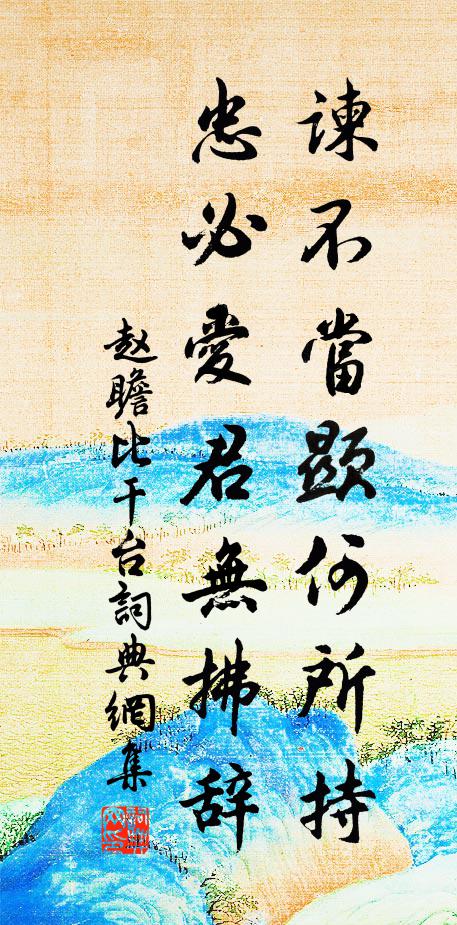 諫不當顯何所持
忠必愛君無拂辞
赵瞻比干台詞典網集